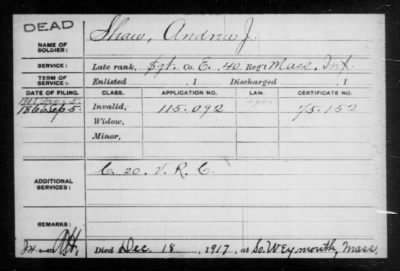 DEAD
NAME OF SOLDIER: Shaw, Andrew J.
SERVICE: Late rank, Sgt. Co. E. 40 Reg't Mass. Inf.
TERM OF SERVICE: Enlisted , 1 Discharged , 1
DATE OF FILING. CLASS. APPLICATION NO. LAW. CERTIFICATE NO.
1866 Sep 5. Invalid, 115.092 75.152
Widow,
Minor,
ADDITIONAL SERVICES: C. 20. V. R. C.
REMARKS:
Died Dec. 18, 1917, at So. Weymouth, Mass.